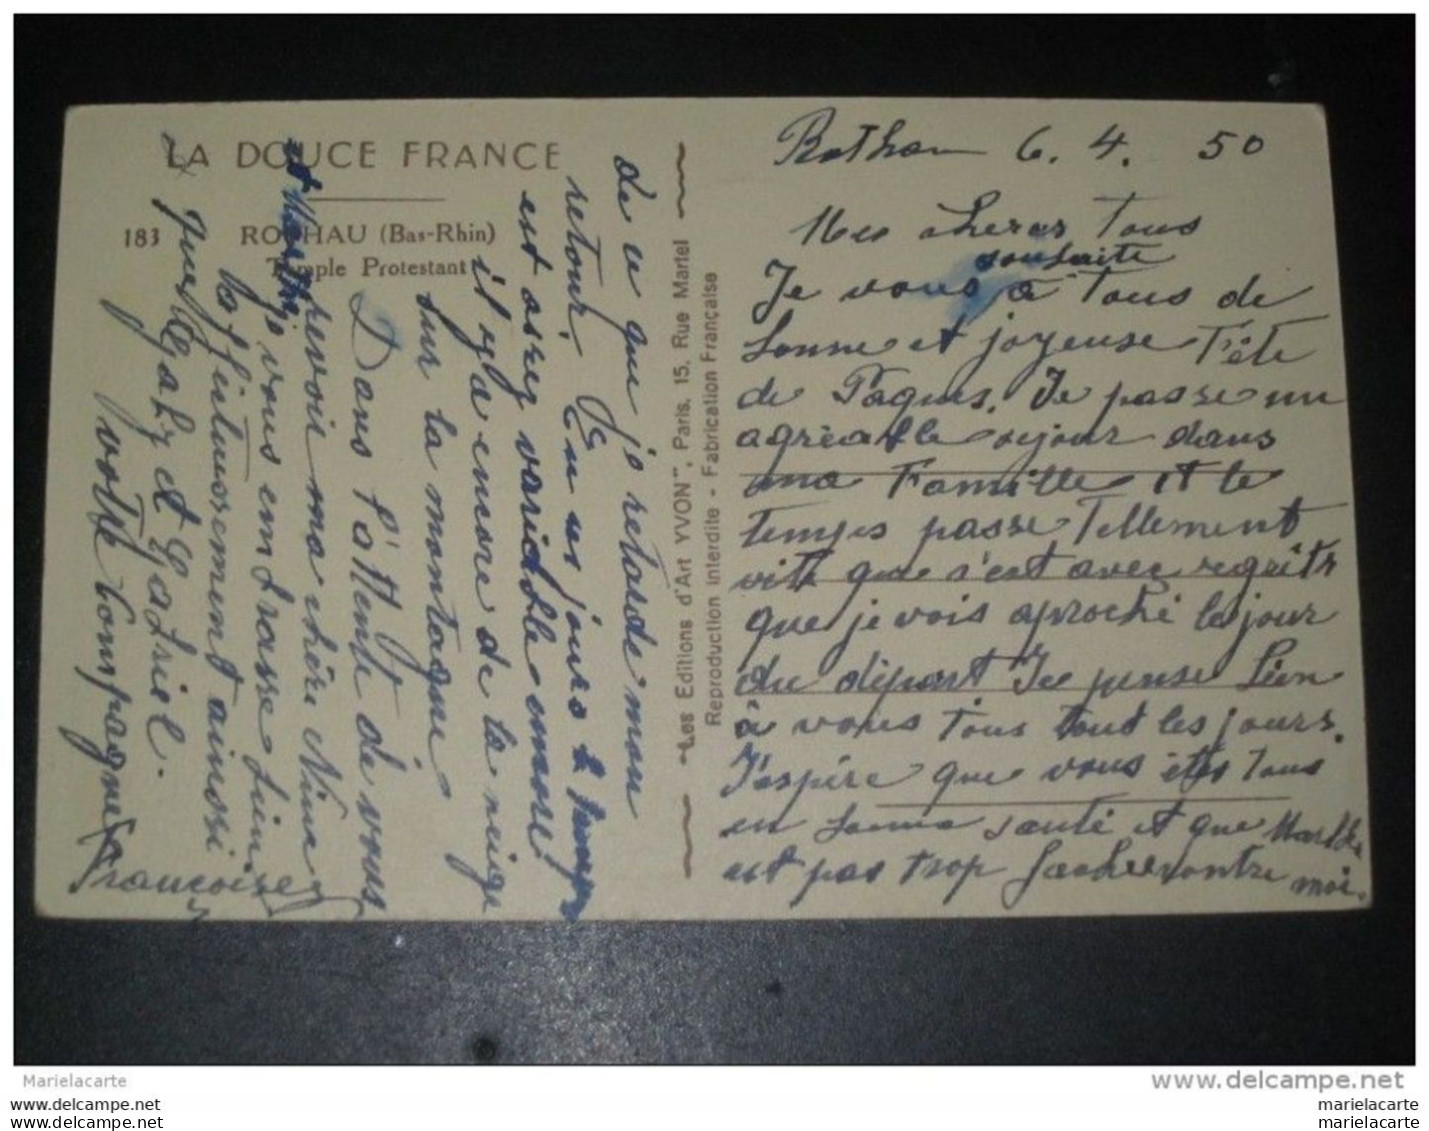 LA DOUCE FRANCE
183 ROTHAU (Bas-Rhin)
Temple Protestant
"Les Editions d'Art YVON", Paris, 15, Rue Martel
Reproduction interdite - Fabrication Française
Rothau 6. 4. 50
Mes chères Tous
souhaite
Je vous à Tous de
bonne et joyeuse Fête
de Pâques. Je passe un
agréable séjour dans
ma Famille et le
temps passe Tellement
vite que s'est avec regrêts
que je vois aproché le jour
du départ Je pense bien
à vous tous tout les jours.
J'espère que vous êtes tous
en bonne santé et que Marthe
est pas trop fachée contre moi.
de ce que je retarde mon
retour. En ces jours le temps
est assez variable encore
il y a encore de la neige
sur la montagne
Dans l'attente de vous
revoir ma chère Nine
et Marthe
je vous embrasse bien
affectueusement ainssi
que Gaby et Gabriel.
votre Compagne
Françoise
Marielacarte
www.delcampe.net
marielacarte
marielacarte
marielacarte
marielacarte